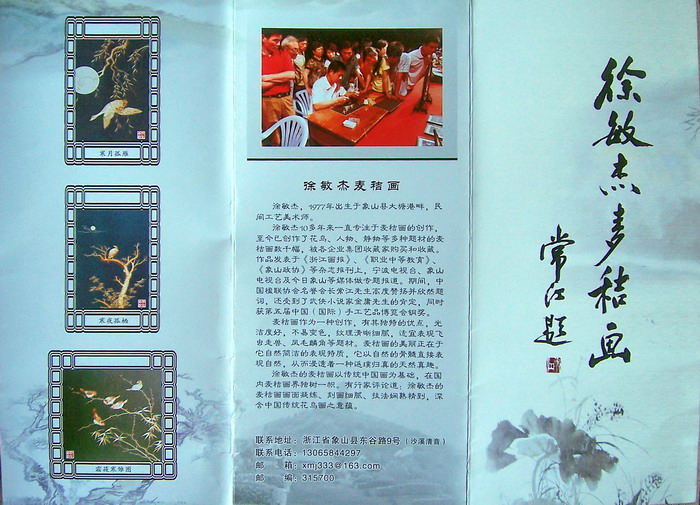 寒月孤雁
寒夜孤栖
霜筱寒雏图
徐敏杰麦秸画
徐敏杰，1977年出生于象山县大塘港畔，民
间工艺美术师。
徐敏杰10多年来一直专注于麦秸画的创作，
至今已创作了花鸟、人物、静物等多种题材的麦
秸画数千幅，被各企业集团收藏家购买和收藏。
作品发表于《浙江画报》、《职业中等教育》、
《象山政协》等杂志报刊上，宁波电视台、象山
电视台及今日象山等媒体做专题报道。期间，中
国楹联协会名誉会长常江先生高度赞扬并欣然题
词，还受到了武侠小说家金庸先生的肯定，同时
获第五届中国（国际）手工艺品博览会铜奖。
麦秸画作为一种创作，有其独特的优点，光
洁度好，不易变色，纹理清晰细腻，适宜表现飞
台走兽、凤毛麟角等题材。麦秸画的美丽正在于
它自然简洁的表现特质，它以自然的骨髓直接表
现自然，从而浸透着一种返璞归真的天然真趣。
徐敏杰的麦秸画以传统中国画为基础，在国
内麦秸画界独树一帜。有行家评论道：徐敏杰的
麦秸画画面凝练、刻画细腻、技法娴熟精到，深
含中国传统花鸟画之意蕴。
联系地址：浙江省象山县东谷路9号（沙溪清音）
联系电话：13065844297
邮 箱：xmj333@163.com
邮 编：315700
徐敏杰麦秸画
常江题